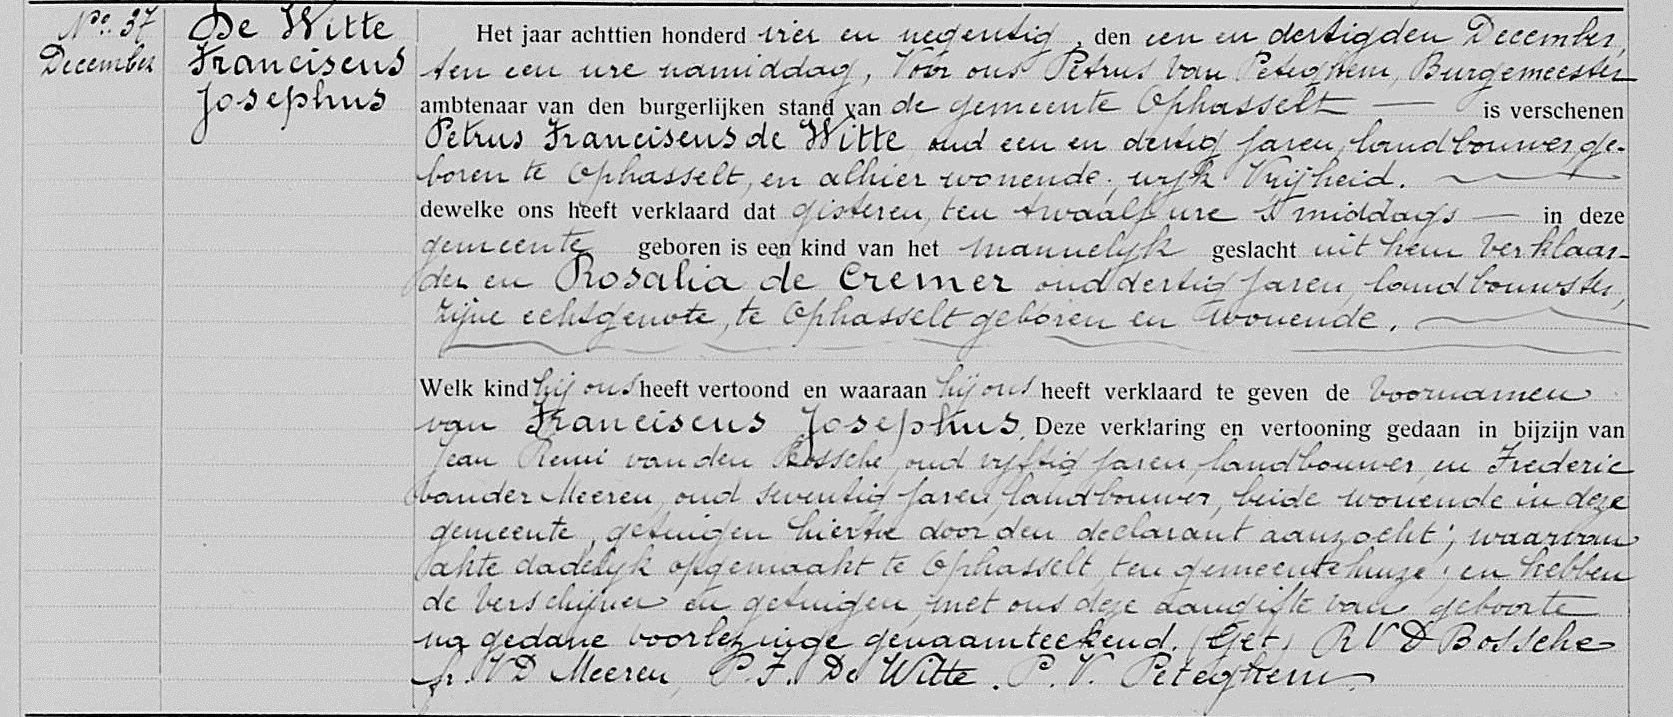 No. 37
December
De Witte
Franciscus
Josephus
Het jaar achttien honderd vier en negentig, den een en dertigden December,
ten een ure namiddag, Voor ons Petrus Van Peteghem, Burgemeester
ambtenaar van den burgerlijken stand van de gemeente Ophasselt — is verschenen
Petrus Franciscus de Witte oud een en dertig jaren, landbouwer ge-
boren te Ophasselt, en alhier wonende, wijk Vrijheid.
dewelke ons heeft verklaard dat gisteren, ten twaalf ure 's middags — in deze
gemeente geboren is een kind van het mannelijk geslacht uit hem verklaar-
der en Rosalia de Cremer oud dertig jaren, landbouwster,
zijne echtgenote, te Ophasselt geboren en wonende.
Welk kind hij ons heeft vertoond en waaraan hij ons heeft verklaard te geven de voornamen
van Franciscus Josephus. Deze verklaring en vertooning gedaan in bijzijn van
Jean Remi van den Bossche, oud vijftig jaren, landbouwer, en Frederic
vander Meeren, oud seventig jaren, landbouwer, beide wonende in deze
gemeente, getuigen hiertoe door den declarant aanzocht; waarvan
akte dadelijk opgemaakt te Ophasselt, ten gemeentehuize; en hebben
de verschijner en getuigen, met ons deze aangifte van geboorte
na gedane voorlezinge genaamteekend. (Get) R V D Bossche
fr. V D Meeren, P. F. De Witte. P. V. Peteghem.